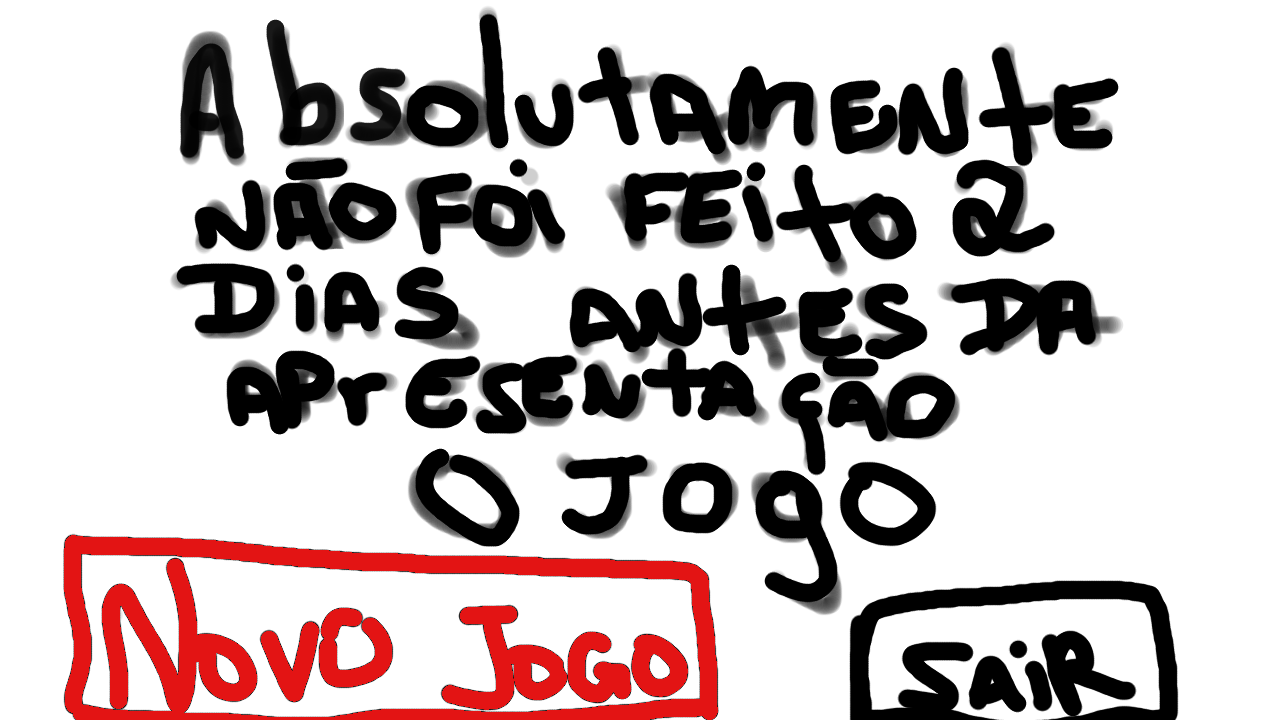 Absolutamente
não foi feito 2
dias antes da
apresentação
o jogo
Novo Jogo
Sair